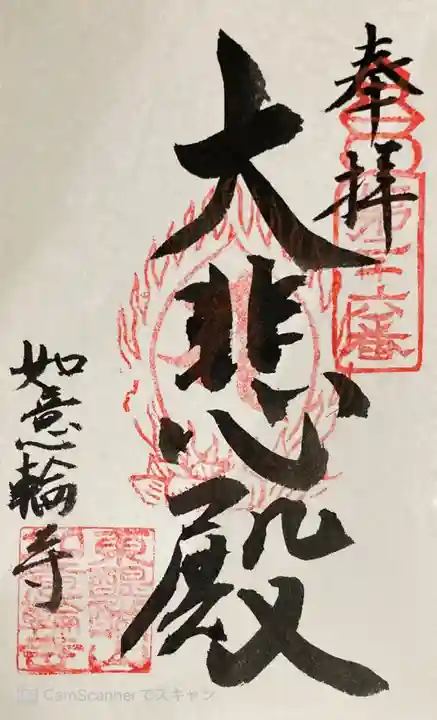 奉拝
第二十六番
大悲殿
如意輪寺
CamScannerでスキャン